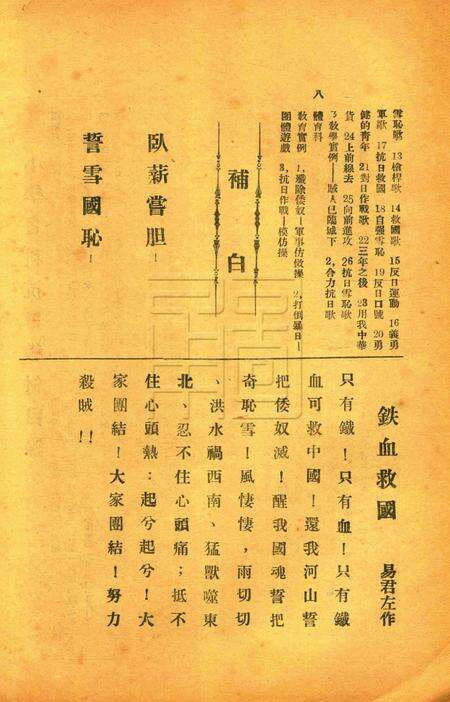 八
雪恥歌 13槍桿歌 14救國歌 15反日運動 16義勇
軍歌 17抗日救國 18自強雪恥 19反日口號 20勇
健的青年 21對日作戰歌 22三年之後 23用我中華
貨 24上前線去 25向前進攻 26抗日雪恥歌
教學實例——賊人已臨城下 2,合力抗日歌
體育科
教育實例 1,殲除倭奴——軍事仿傚操 2,打倒暴日——
團體遊戲 3,抗日作戰——模仿操
補白
臥薪嘗胆！
誓雪國恥！
鉄血救國 易君左作
只有鐵！只有血！只有鐵
血可救中國！還我河山誓
把倭奴滅！醒我國魂誓把
奇恥雪！風悽悽，雨切切
、洪水禍西南、猛獸噬東
北、忍不住心頭痛；抵不
住心頭熱：起兮起兮！大
家團結！大家團結！努力
殺賊！！